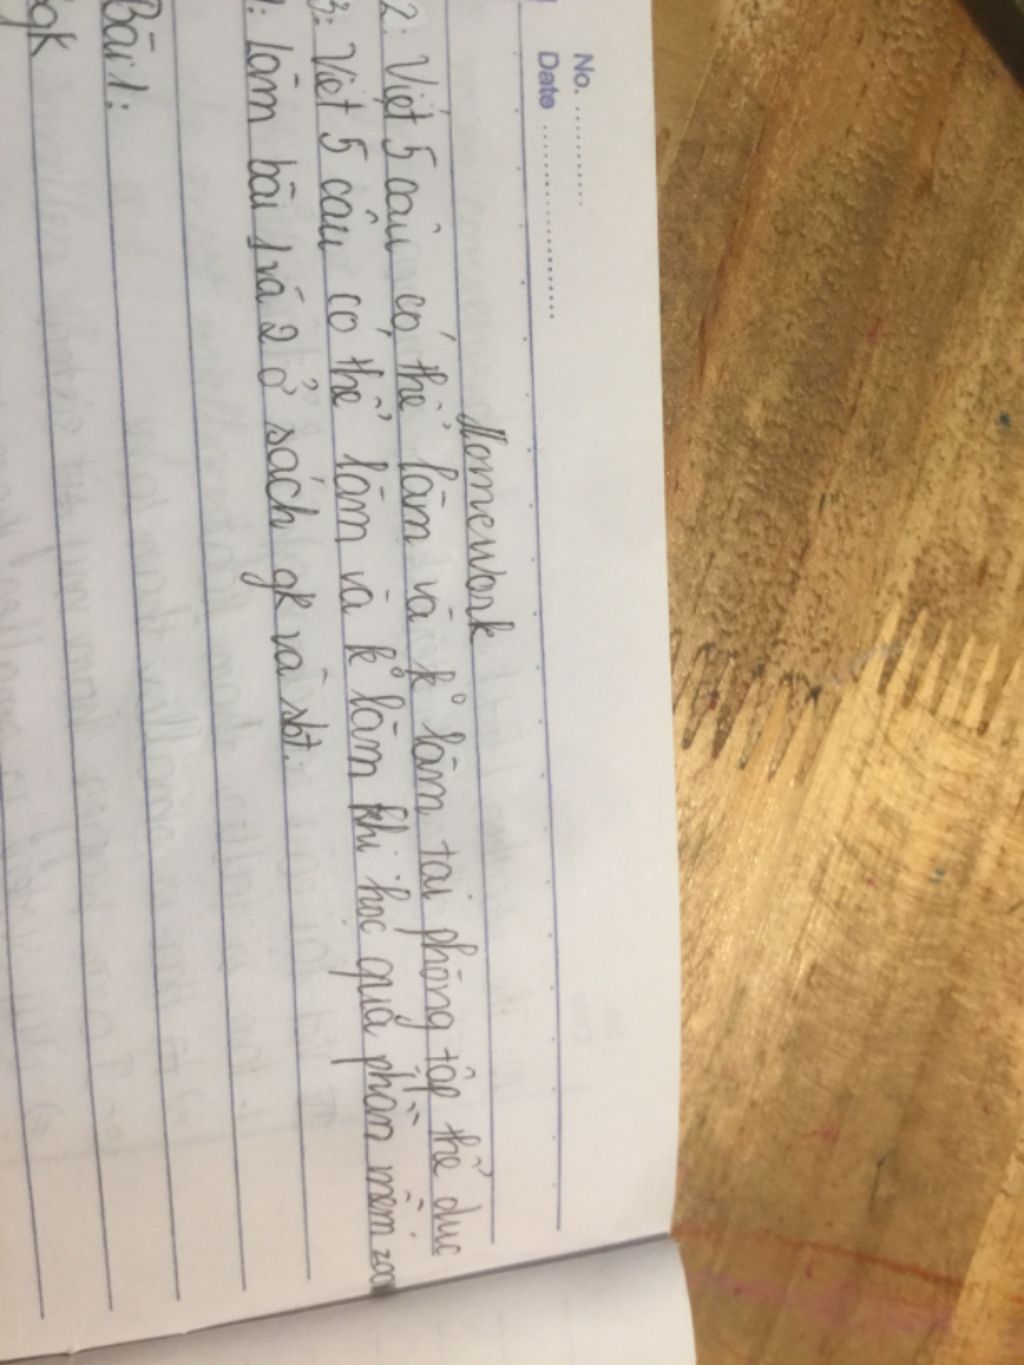 No. ............
Date .....................
Homework
2: Viết 5 câu có thể làm và k° làm tại phòng tập thể dục
3: Viết 5 câu có thể làm và k° làm khi học qua phần mềm zoom
1: Làm bài 1 và 2 ở sách gk và sbt.
Bài 1:
sgk